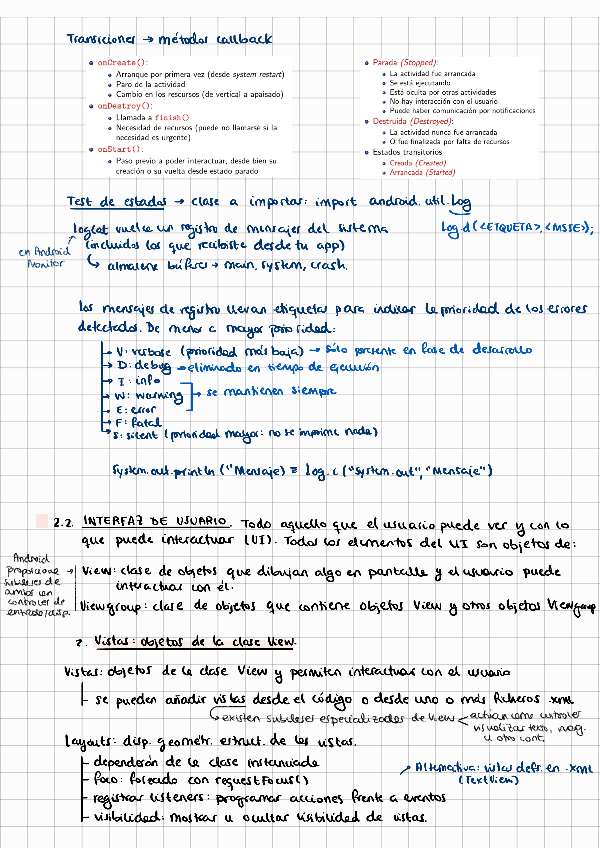 Transiciones → métodos callback
onCreate():
Arranque por primera vez (desde system restart)
Paro de la actividad
Cambio en los rescursos (de vertical a apaisado)
onDestroy():
Llamada a finish()
Necesidad de recursos (puede no llamarse si la
necesidad es urgente)
onStart():
Paso previo a poder interactuar, desde bien su
creación o su vuelta desde estado parado
Parada (Stopped):
La actividad fue arrancada
Se está ejecutando
Está oculta por otras actividades
No hay interacción con el usuario
Puede haber comunicación por notificaciones
Destruida (Destroyed):
La actividad nunca fue arrancada
O fue finalizada por falta de recursos
Estados transitorios
Creada (Created)
Arrancada (Started)
Test de estados → clase a importar: import android.util.Log
logcat vuelca un registro de mensajes del sistema
Log.d(<ETIQUETA>, <MSJE>);
(incluidos los que recibiste desde tu app)
en Android
Monitor
almacena búfers → main, system, crash.
Los mensajes de registro llevan etiquetas para indicar la prioridad de los errores
detectados. De menor a mayor prioridad:
V: verbose (prioridad más baja) → sólo presente en fase de desarrollo
D: debug → eliminado en tiempo de ejecución
I: info
W: warning → se mantienen siempre
E: error
F: fatal
S: silent (prioridad mayor: no se imprime nada)
System.out.println ("Mensaje) ≡ log.i ("System.out", "Mensaje")
2.2. INTERFAZ DE USUARIO. Todo aquello que el usuario puede ver y con lo
que puede interactuar (UI). Todos los elementos del UI son objetos de:
Android
proporciona
subclases de
ambos con
controles de
entrada/disp.
View: clase de objetos que dibujan algo en pantalla y el usuario puede
interactuar con él.
Viewgroup: clase de objetos que contiene objetos View y otros objetos Viewgroup.
2. Vistas: objetos de la clase View.
Vistas: objetos de la clase View y permiten interactuar con el usuario
se pueden añadir vistas desde el código o desde uno o más ficheros .xml
existen subclases especializadas de View
actúan como controles
visualizar texto, imag.
u otro cont.
Layouts: disp. geométr. estruct. de las vistas.
dependerán de la clase instanciada
foco: forzado con requestFocus()
Alternativa: vistas defs. en .xml
(TextView)
registrar listeners: programar acciones frente a eventos
visibilidad: mostrar u ocultar visibilidad de vistas.